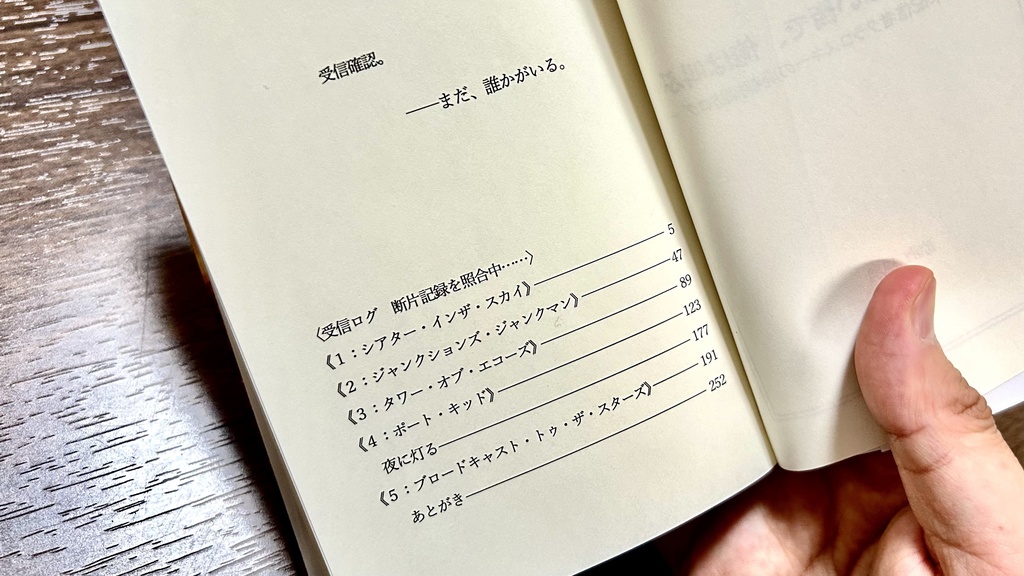 受信確認。
――まだ、誰かがいる。
〈受信ログ　断片記録を照合中……〉
《1：シアター・インザ・スカイ》―― 5
《2：ジャンクションズ・ジャンクマン》―― 47
《3：タワー・オブ・エコーズ》―― 89
《4：ボート・キッド》―― 123
夜に灯る―― 177
《5：ブロードキャスト・トゥ・ザ・スターズ》―― 191
あとがき―― 252